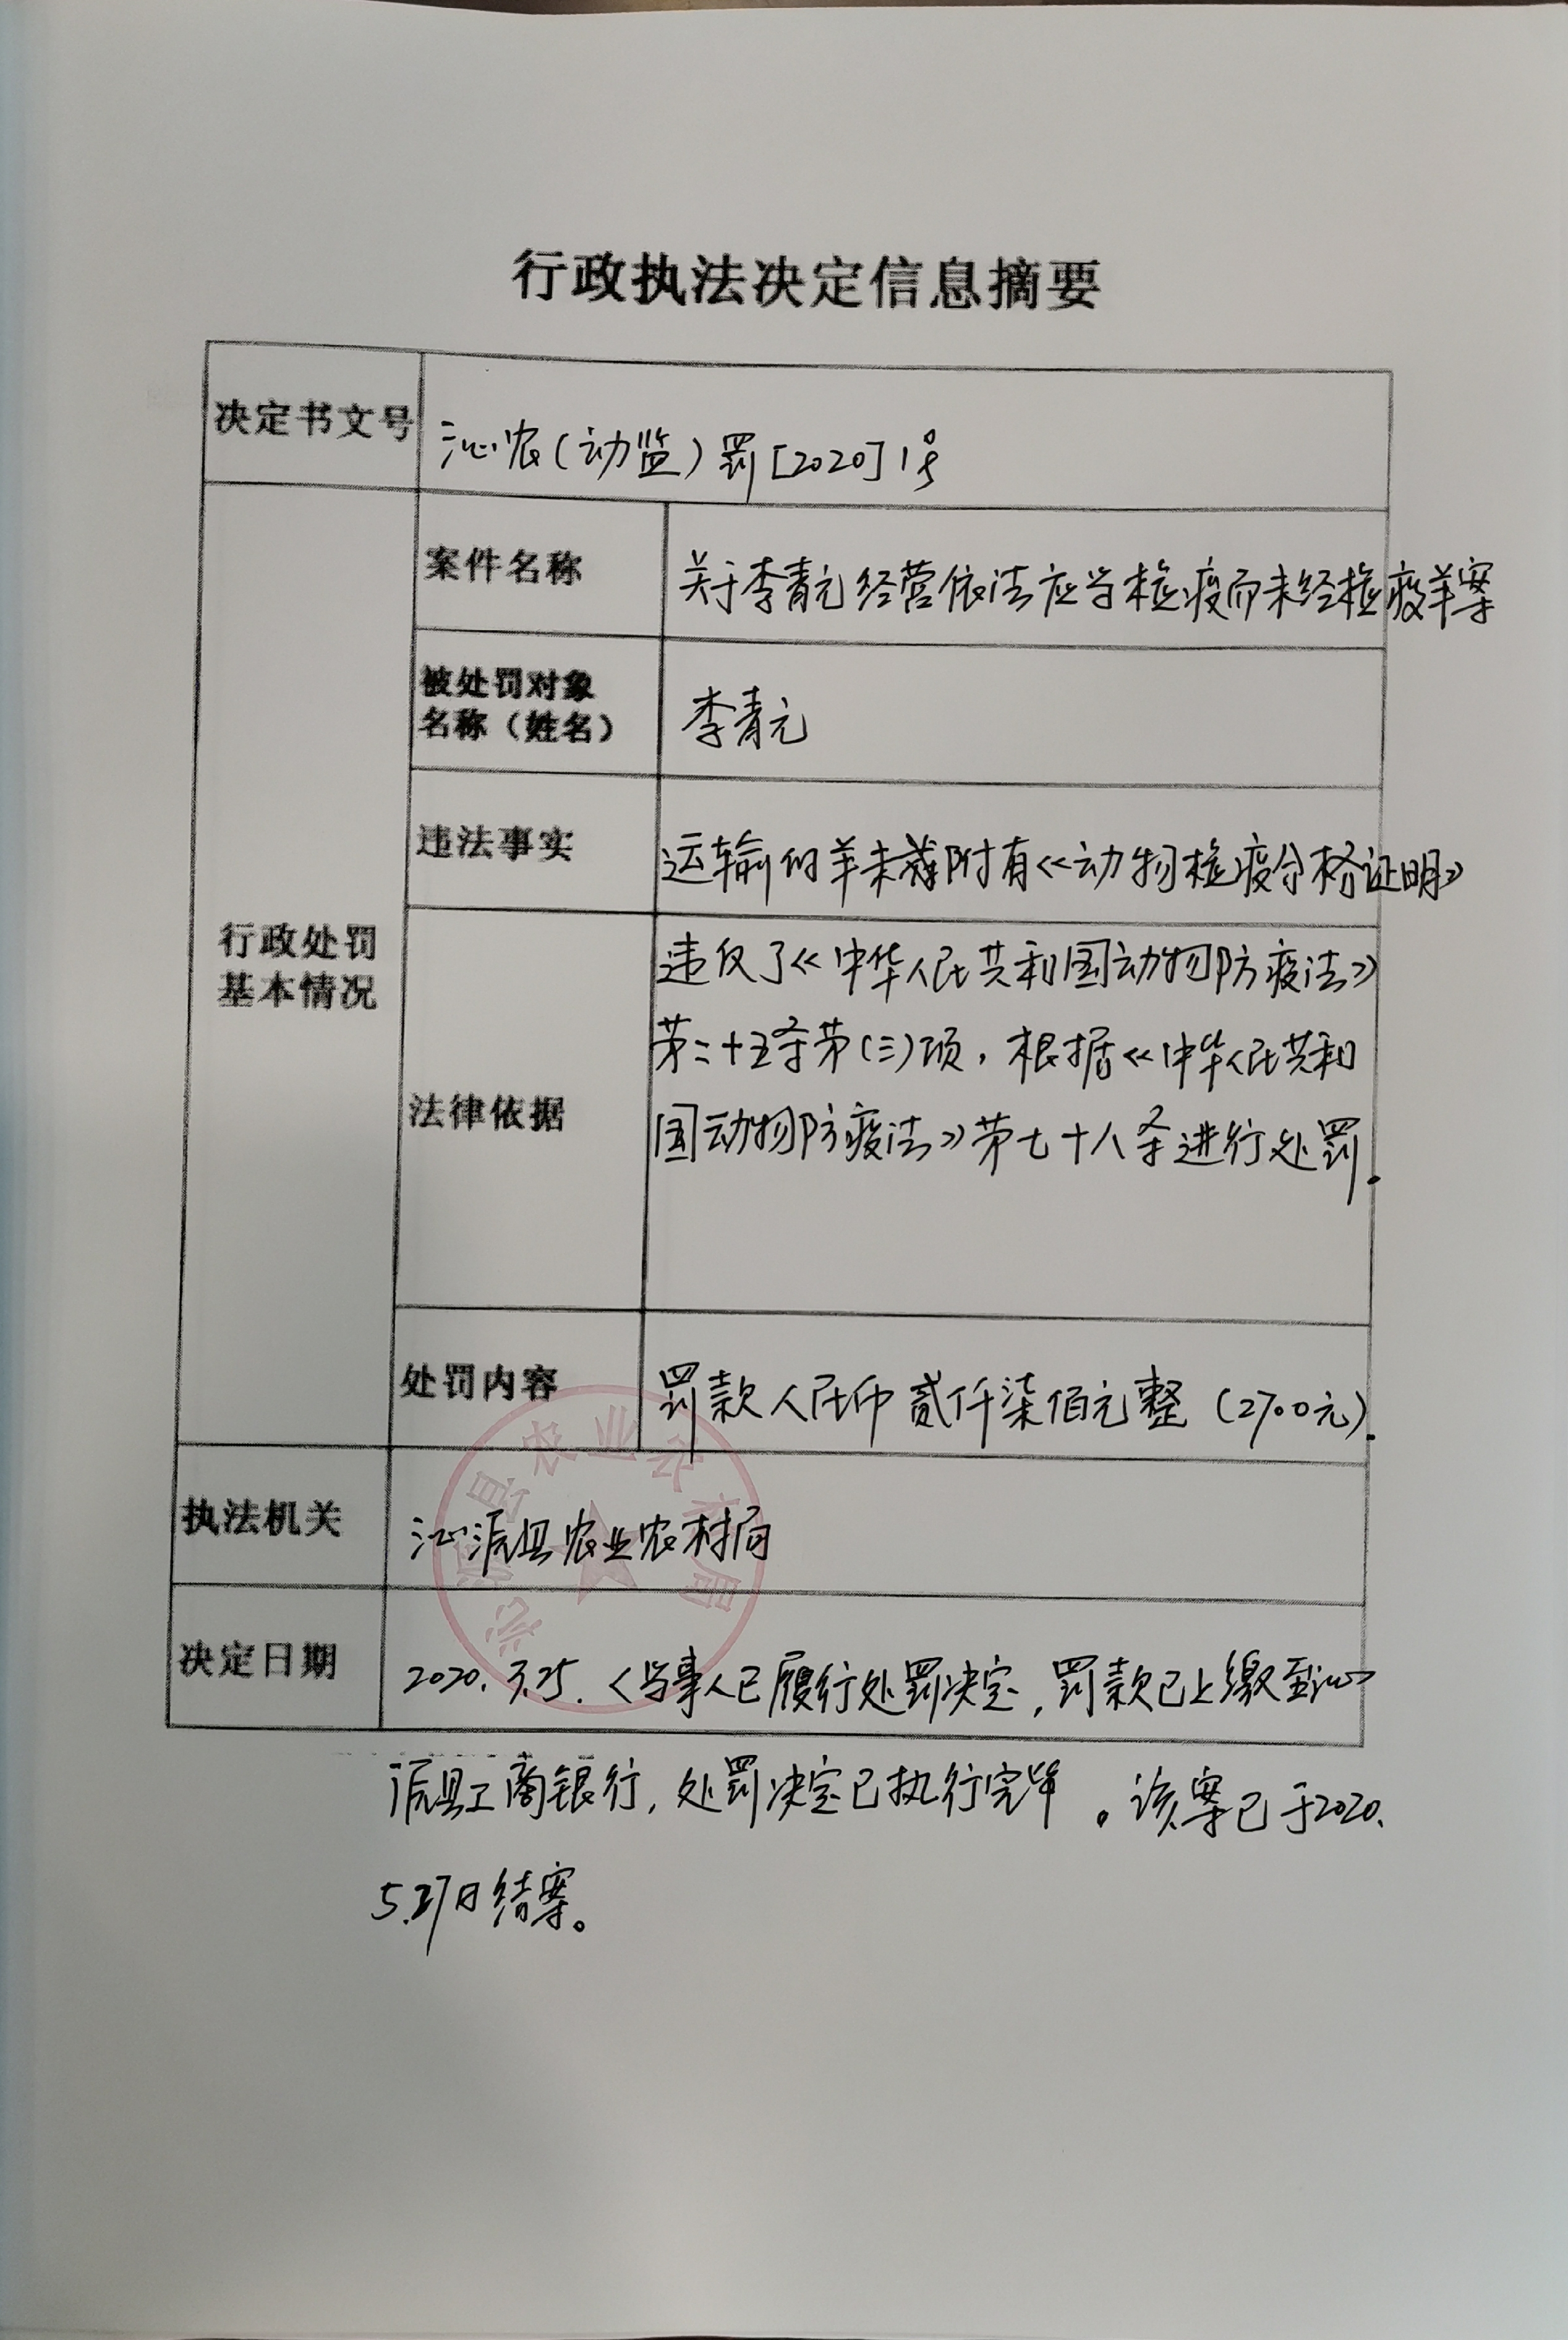 行政执法决定信息摘要
决定书文号
沁农(动监)罚[2020]1号
案件名称
关于李青元经营依法应当检疫而未经检疫羊案
被处罚对象
名称（姓名）
李青元
违法事实
运输的羊未附有《动物检疫合格证明》
行政处罚
基本情况
法律依据
违反了《中华人民共和国动物防疫法》
第二十五条第(三)项，根据《中华人民共和
国动物防疫法》第七十八条进行处罚.
处罚内容
罚款人民币贰仟柒佰元整(2700元).
执法机关
沁源县农业农村局
沁源县农业农村局
决定日期
2020.3.25.〈当事人已履行处罚决定,罚款已上缴至沁
源县工商银行,处罚决定已执行完毕。该案已于2020.
5.27日结案。